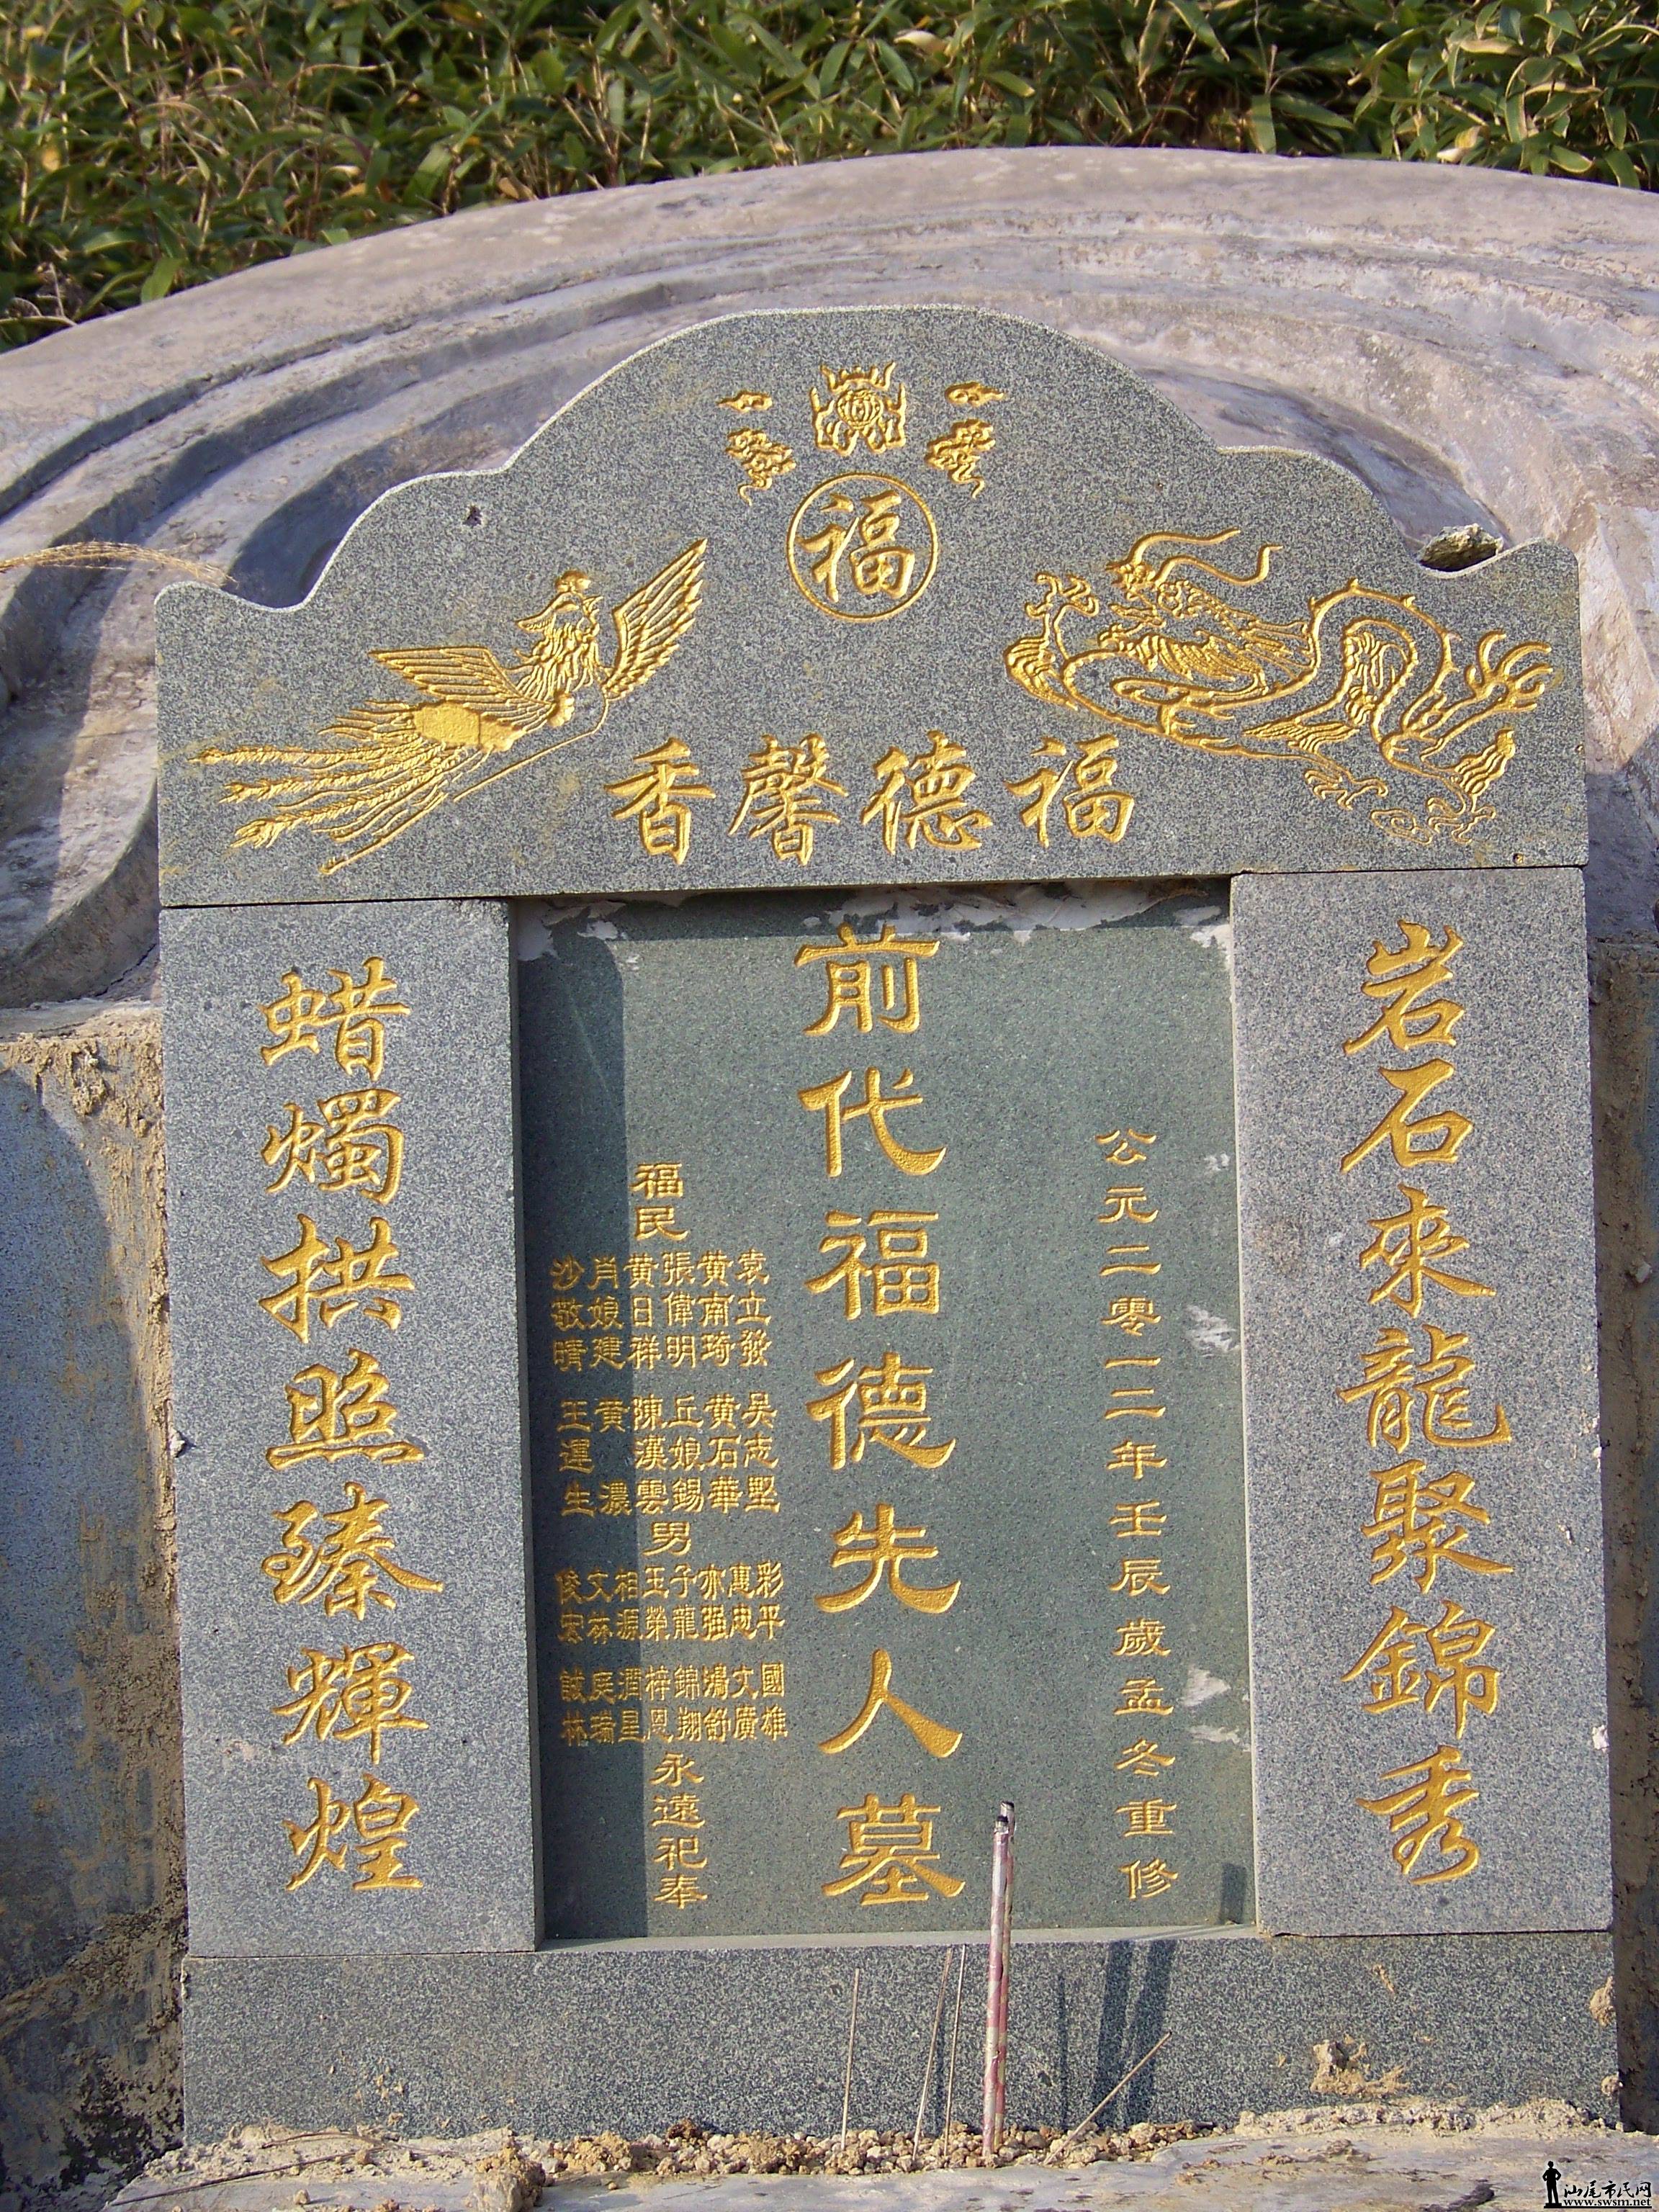 福
福德馨香
岩石來龍聚錦秀
公元二零一二年壬辰歲孟冬重修
前代福德先人墓
福民
袁立發
黄南琦
張偉明
黄日祥
肖娘建
沙敬晴
吴志堅
黄石華
丘娘錫
陳漢雲
黄濃
王運生
男
彩平
惠忠
亦强
子龍
玉榮
相源
文林
俊宏
國雄
文廣
鴻舒
錦翔
梓恩
潤星
庭瑞
誠林
永遠祀奉
蜡燭拱照臻輝煌
汕尾市民网
www.swsm.net